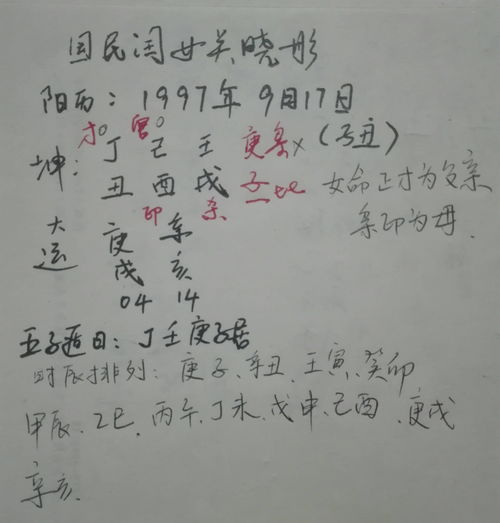 国民闺女关晓彤
阳历：1997年9月17日
才 官
坤：丁 己 壬 庚枭×（子丑）
丑 酉 戌 子比 女命正才为父亲
印 杀 枭印为母.
大运 庚 辛
戌 亥
04 14
五子遁日：丁壬庚子居
时辰排列：庚子、辛丑、壬寅、癸卯
甲辰、乙巳、丙午、丁未、戊申、己酉、庚戌
辛亥.